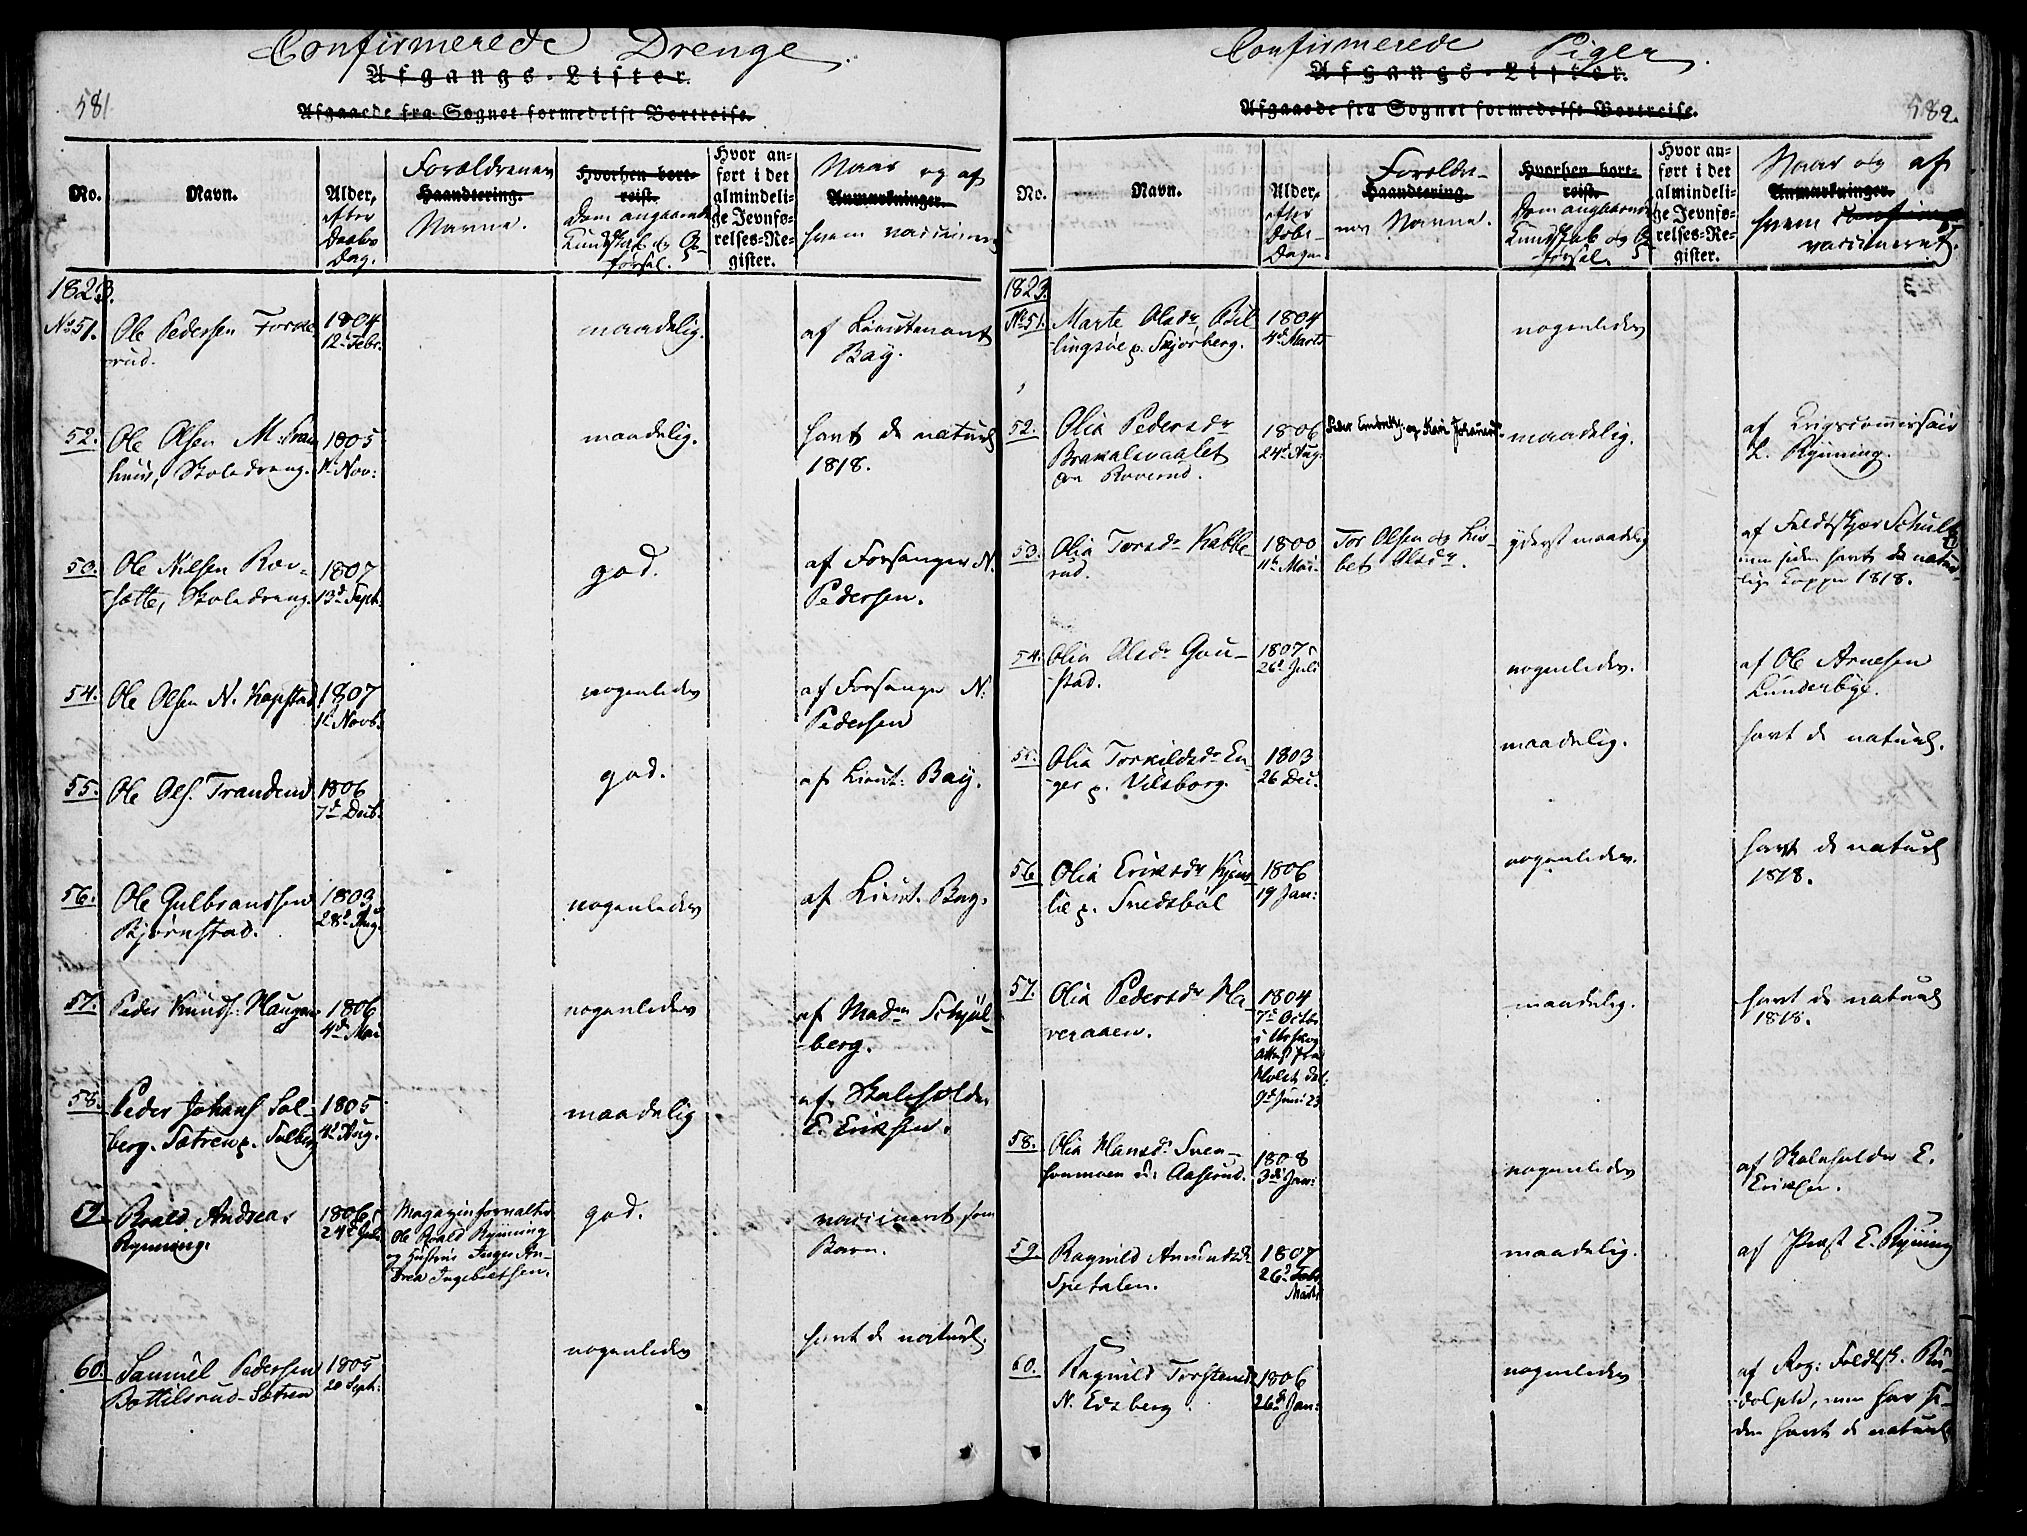 Confirmerede Drenge.
Afgangs-Lister.
581
Afgaaede fra Sognet formedelst Bortreise.
No.
Navn.
Alder,
efter
Daabs
Dag.
Forældrenes
Haandtering.
Navne.
Hvorhen bort-
reist.
Dom angaaende
Kundskab og Op-
førsel.
Hvor an-
ført i det
almindeli-
ge Jevnfø-
relses-Re-
gister.
Naar og af
Anmærkninger.
hvem vaccineret
1823.
No 51. Ole Pedersen
rud.
1804
12 Febr.
maadelig.
af Lieutenant
Bay.
52. Ole Olsen
Skoledreng.
1805
1 Nov:
maadelig.
havt de naturl
1818.
53. Ole Nilsen Rov-
sætte, Skoledreng.
1807
13d Sept.
god.
af Forsanger N.
Pedersen.
54. Ole Olsen N. Kapstad
1807
1t Novb.
nogenledes
af Forsanger N.
Pedersen
55. Ole Ols. Tranden
1806
7d Decb.
god.
af Lieut: Bay.
56. Ole Gulbrandsen
Bjørnstad.
1803
28d Aug.
nogenledes
af Lieut. Bay.
57. Peder Knuds. Haugen
1806
4de Mai
nogenledes
af Madm Schjøl-
berg.
58. Peder Johans Sol-
berg. Sætren p. Solberg
1805
4d Aug.
maadelig
af Skoleholder
E. Eriksen.
59. Roald Andreas
Rynning.
1806
24d Juli
Magazinforvalter
Ole Roald Rynning
og Hustrue Inger An-
drea Ingebretsen.
god.
vaccineret som
Barn.
60. Samuel Pedersen
Bottilsrud-Sætren
1805
20 Sept:
nogenledes
havt de naturl.
Confirmerede Piger.
Afgangs-Lister.
582.
Afgaaede fra Sognet formedelst Bortreise.
No.
Navn.
Alder,
efter
Døbe-
Dagen
Foreldre-
Haandtering
nes Navne.
Hvorhen bort-
reist.
Dom angaaende
Kundskab og Op-
førsel.
Hvor an-
ført i det
almindeli-
ge Jevnfø-
relses-Re-
gister.
Naar og af
Anmærkninger.
hvem
vaccineret.
1823.
No 51. Marte Olsdr Bil-
lingsøe p. Skjørberg.
1804
4d Marts
nogenledes
52. Olia Pedersdr
Brakalsvaalet
Roverud.
1806
24d Aug.
Peder og Kari
maadelig.
af Krigscommissair
L. Rynning.
53. Olia Torsdr Kabbe-
rud.
1800
11te Mai
Tor Olsen og Lis-
bet Olsdr.
yderst maadelig
af Feldtskjær Schultz
men siden havt de natur-
lige Kopper 1818.
54. Olia Olsdr Gau-
stad.
1807
26d Juli
nogenledes.
af Ole Arnesen
Lunderbye.
55. Olia Torkildsdr En-
ger p. Vilsborg.
1803
26 Dec.
maadelig.
havt de naturl.
56. Olia Eriksdr
lie p. Snedsbøl
1806
19 Jan:
nogenledes.
havt de naturl
1818.
57. Olia Pedersdr Ha
veraaen.
1804
7d Octbr
i Urskog
Attest fra
Holst dat:
9d Juni 23
maadelig.
havt de naturl
1818.
58. Olia Hansdr Sven-
Aaserud.
1808
3die Jan:
nogenledes
af Skoleholder E.
Eriksen.
59. Ragnild Amundsdr
Spetalen.
1807
26d Febr
Marts
maadelig.
af Præst E. Rynning
60. Ragnild Torstensdr
N. Edsberg.
1806
26d Jan:
nogenledes
af Reg: Feldtsk. Ru-
dolph, men har si-
den havt de naturl